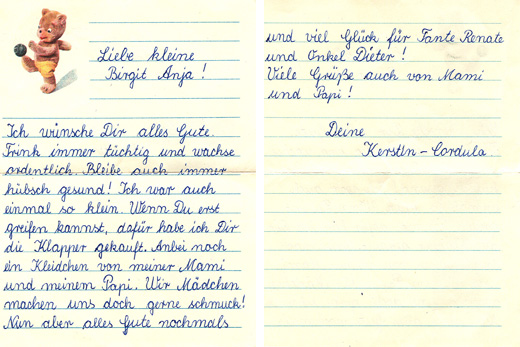 Liebe kleine
Birgit Anja!
Ich wünsche Dir alles Gute.
Trink immer tüchtig und wachse
ordentlich. Bleibe auch immer
hübsch gesund! Ich war auch
einmal so klein. Wenn Du erst
greifen kannst, dafür habe ich Dir
die Klapper gekauft. Anbei noch
ein Kleidchen von meiner Mami
und meinem Papi. Wir Mädchen
machen uns doch gerne schmuck!
Nun aber alles Gute nochmals
und viel Glück für Tante Renate
und Onkel Dieter!
Viele Grüße auch von Mami
und Papi!
Deine
Kerstin-Cordula